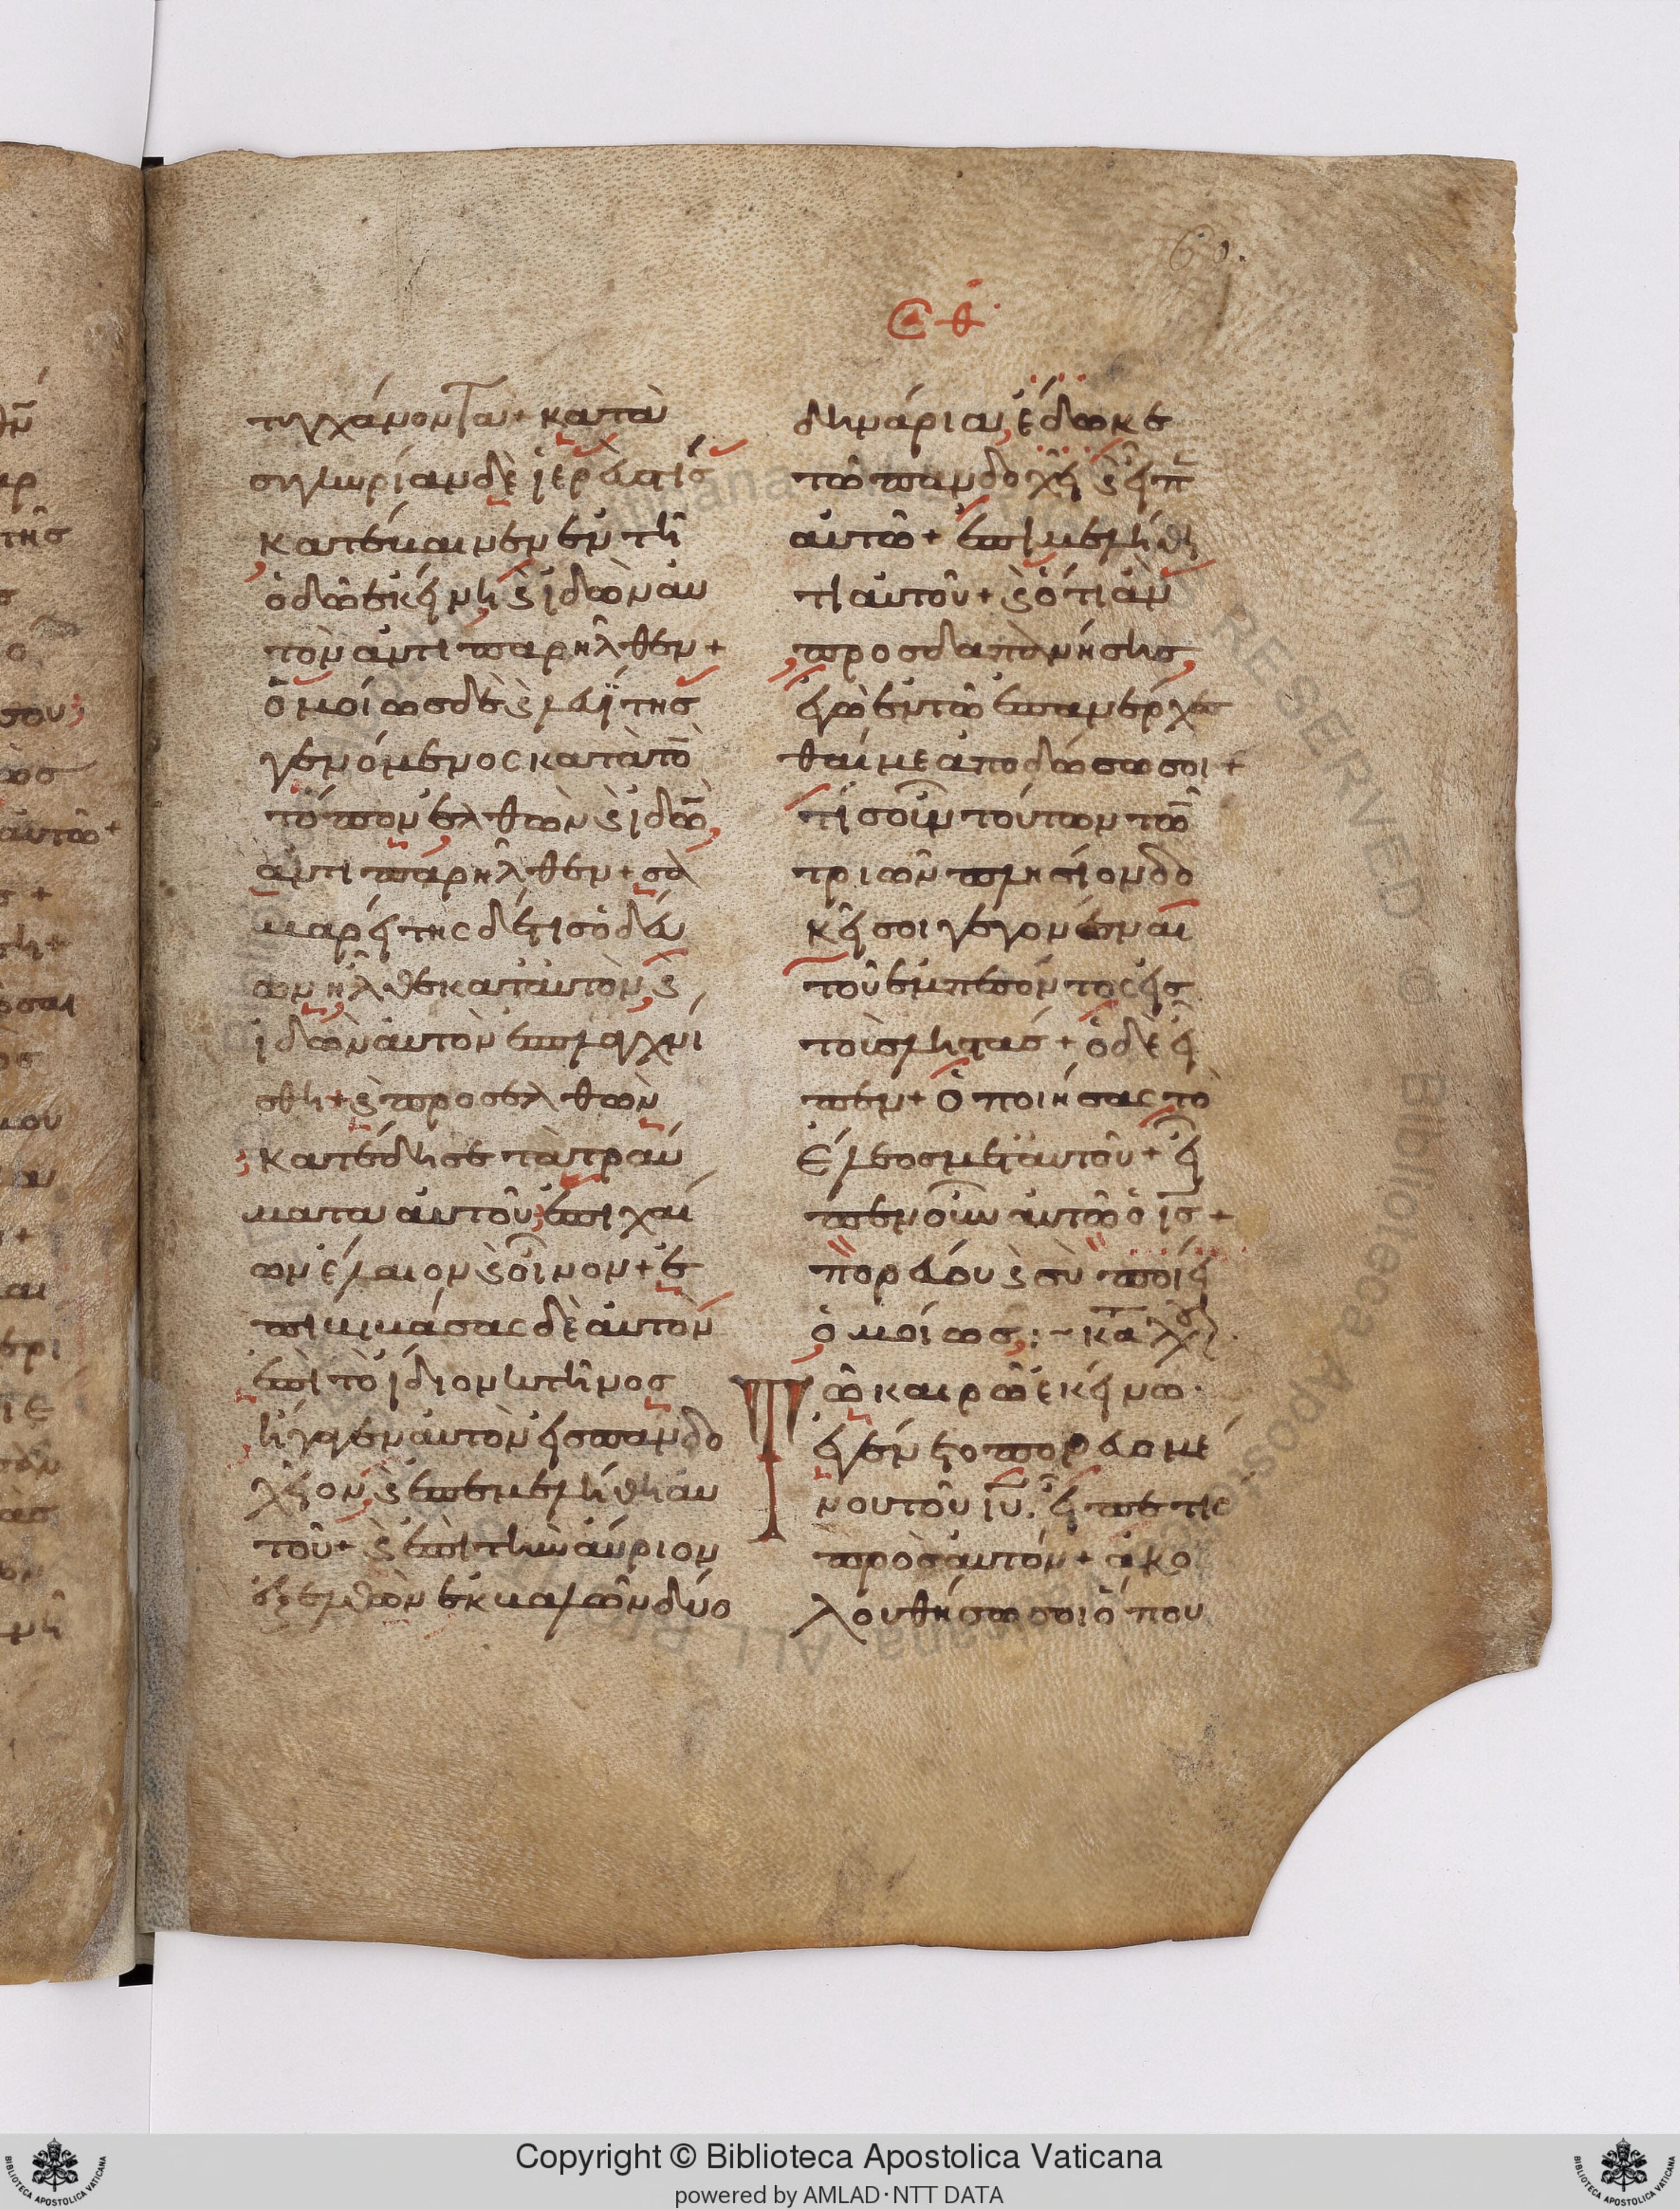 60.
τυγχάνοντα + κατὰ
συγκυρίαν δὲ ἱερεύς τις
κατέβαινεν ἐν τῆ
ὁδῶ ἐκείνη ϗ ἰδὼν αυ
τὸν ἀντιπαρῆλθεν +
ὁμοίως δὲ ϗ λευΐτης
γενόμενος κατὰ τὸ
τόπον ἐλθὼν ϗ ἰδὼ
ἀντιπαρῆλθεν + σα
μαρείτης δέ τις ὁδεύ
ων ἦλθε κατ αυτὸν ϗ
ἰδὼν αυτὸν ἐσπλαγχνί
σθη + ϗ προσελθὼν
κατέδησε τὰ τραύ
ματα αυτοῦ ἐπιχέ
ων ἔλαιον ϗ οἶνον + ἐ
πιβιβάσας δὲ αυτὸν
ἐπὶ τὸ ἴδιον κτῆνος
ἤγαγεν αυτὸν εἰς πανδο
χεῖον ϗ ἐπεμελήθη αυ
τοῦ + ϗ ἐπὶ τὴν αύριον
ἐξελθὼν ἐκβαλὼν δύο
δηνάρια ἔδωκε
τῶ πανδοχεῖ ϗ εἶπ
αυτῶ + ἐπιμελήθη
τι αυτοῦ + ϗ ὅτι ἂν
προσδαπανήσης
ἐγὼ ἐν τῶ ἐπανέρχεσ
θαί με ἀποδώσω σοι +
τίς οῦν τούτων τῶ
τριῶν πλησίον δο
κεῖ σοι γεγονέναι
τοῦ ἐμπεσόντος εἰς
τοὺς ληστάς + ὁ δὲ εἶ
πεν + ὁ ποιήσας τὸ
ἔλεος μετ αυτοῦ + εἶ
πεν οῦν αυτῶ ὁ ις +
πορεύου ϗ σὺ ποίει
ὁμοίως :~
Τῶ καιρῶ ἐκείνω ·
ἐγένετο πορευομέ
νου τοῦ ιυ. εἶπέ τις
πρὸς αυτόν + ἀκο
λουθήσω σοι ὅπου
Copyright © Biblioteca Apostolica Vaticana
powered by AMLAD·NTT DATA